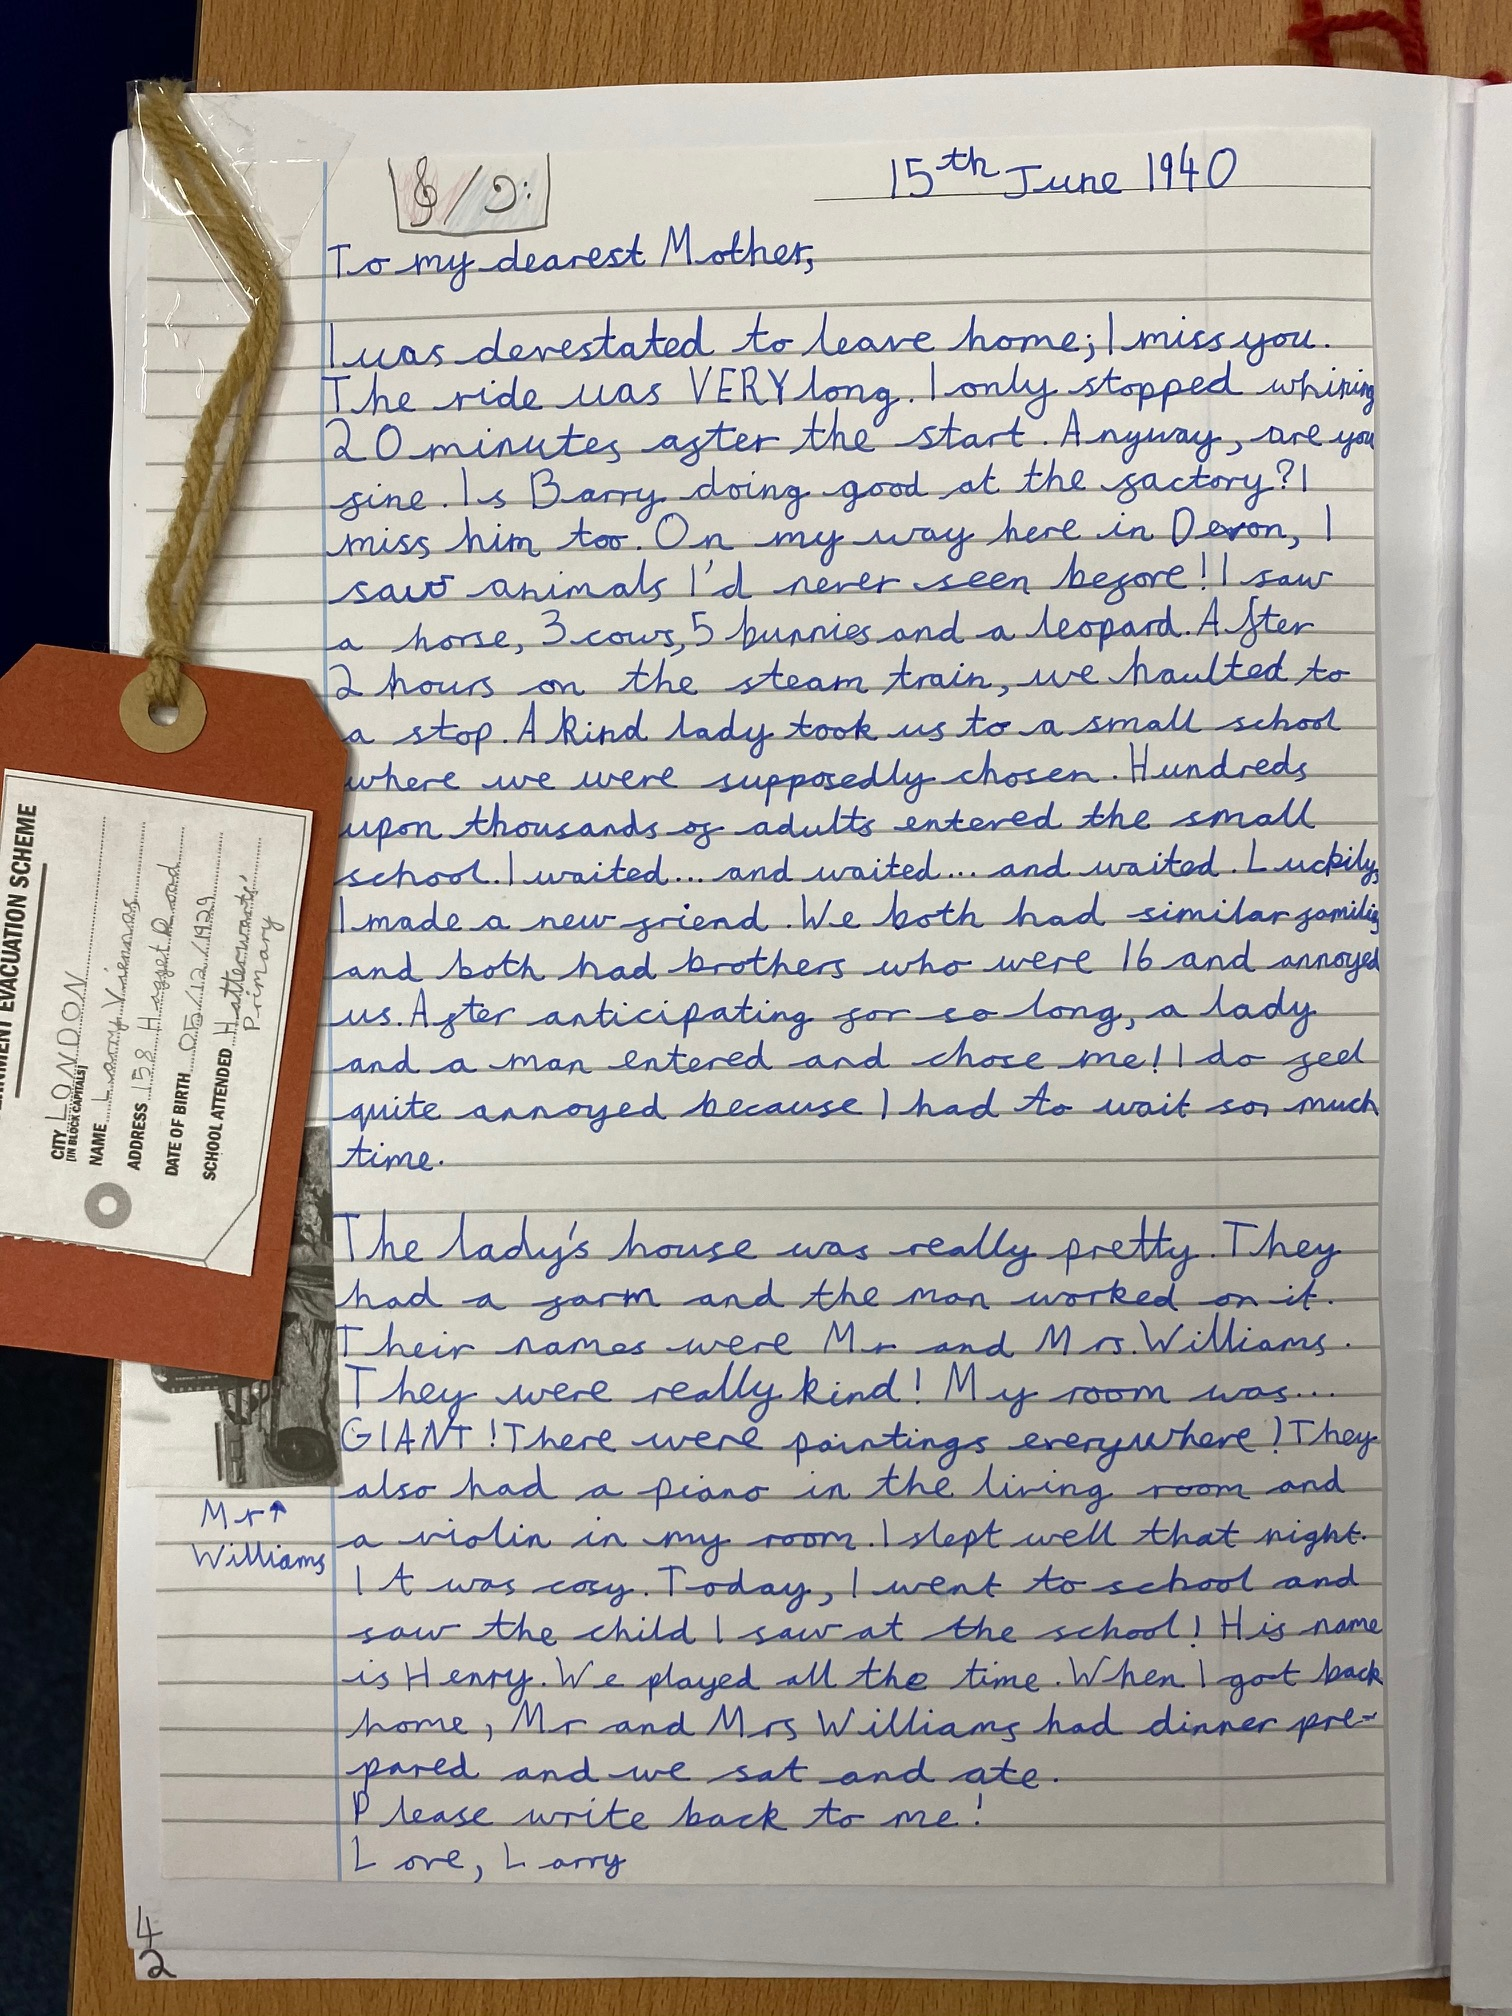 15th June 1940
To my dearest Mother,
I was devestated to leave home; I miss you.
The ride was VERY long. I only stopped whining
20 minutes after the start. Anyway, are you
fine. Is Barry doing good at the factory? I
miss him too. On my way here in Devon, I
saw animals I'd never seen before! I saw
a horse, 3 cows, 5 bunnies and a leopard. After
2 hours on the steam train, we haulted to
a stop. A kind lady took us to a small school
where we were supposedly chosen. Hundreds
upon thousands of adults entered the small
school. I waited... and waited... and waited. Luckily,
I made a new friend. We both had similar
and both had brothers who were 16 and annoyed
us. After anticipating for so long, a lady
and a man entered and chose me! I do feel
quite annoyed because I had to wait so, much
time.
The lady's house was really pretty. They
had a farm and the man worked on it.
Their names were Mr and Mrs. Williams.
They were really kind! My room was...
GIANT! There were paintings everywhere! They
also had a piano in the living room and
a violin in my room. I slept well that night.
It was cosy. Today, I went to school and
saw the child I saw at the school! His name
is Henry. We played all the time. When I got back
home, Mr and Mrs Williams had dinner pre-
pared and we sat and ate.
Please write back to me!
Love, Larry
Mr ↑
Williams
EVACUATION SCHEME
CITY LONDON
[IN BLOCK CAPITALS]
NAME Larry
ADDRESS 158 Road
DATE OF BIRTH 05/12/1929
SCHOOL ATTENDED
Primary
4
2